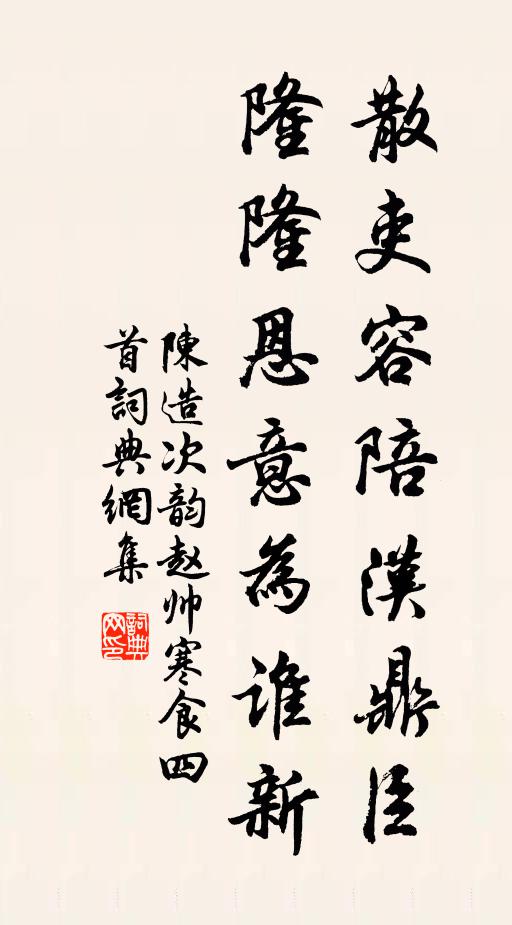 散吏容陪漢鼎臣
隆隆恩意為誰新
陳造次韵赵帅寒食四
首詞典網集
詞典网印